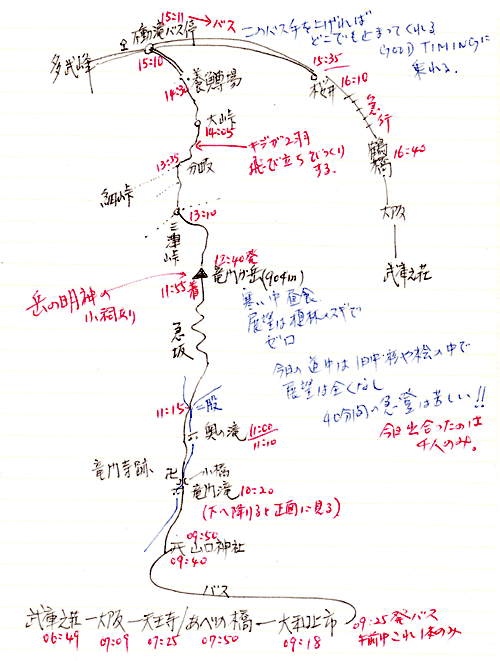 15:11 → バス
不動滝バス停
このバス手を上げれば
どこでも止まってくれる
GOOD TIMINGに
乗れる.
多武峰
15:10
15:35
桜井
16:10
急行
養鱒場
大峠
14:05
鶴橋
16:40
キジが2羽
飛び立ちびっくり
する.
13:35
細峠
大阪
13:10
三津峠
12:40発
竜門ヶ岳(904m)
武庫之荘
11:55着
岳の明神の
小祠有り
寒い中昼食
展望は植林スギで
ゼロ
急坂
今日の道中は1日中杉や桧の中で
展望は全くなし
40分間の急登は苦しい!!
11:15
二股
今日出合ったのは
4人のみ。
奥の滝
11:00
11:10
竜門寺跡
卍
小橋
竜門滝
10:20
(下へ降りると正面に見る)
09:50
山口神社
09:40
バス
武庫之荘ー大阪ー天王寺/あべの橋ー大和上市
09:25発バス
午前中これ1本のみ
06:49 07:09 07:25 07:50 09:18